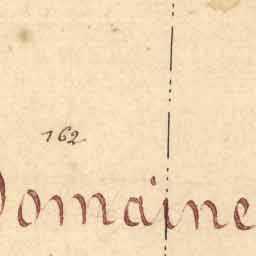 162
Domaine